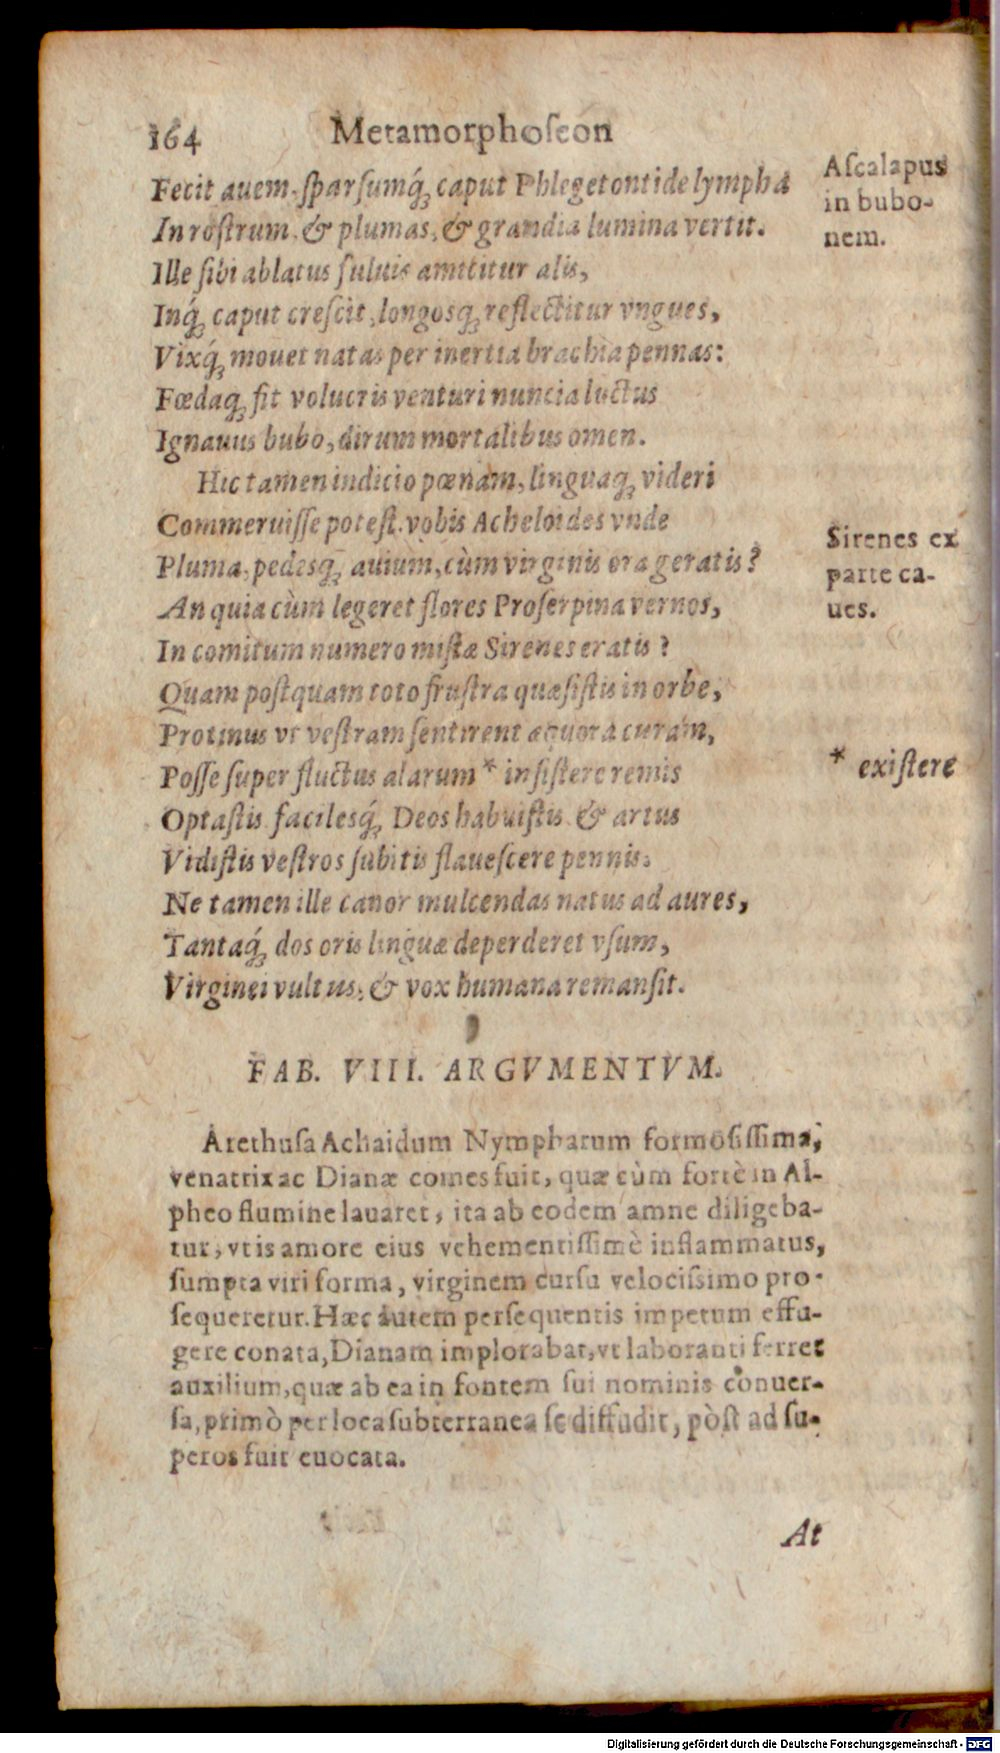 164 Metamorphoſeon
Fecit auem, ſparſumq́; caput Phlegetontide lympha
In roſtrum, & plumas, & grandia lumina vertit.
Ille ſibi ablatus fuluis amicitur alis,
Inq́; caput creſcit, longosq; reflectitur vngues,
Vixq́; mouet natas per inertia brachia pennas:
Fœdaq; fit volucris venturi nuncia luctus
Ignauus bubo, dirum mortalibus omen.
Hic tamen indicio pœnam, linguaq; videri
Commeruiſſe poteſt. vobis Acheloides vnde
Pluma, pedesq; auium, cùm virginis ora geratis?
An quia cùm legeret flores Proſerpina vernos,
In comitum numero miſtæ Sirenes eratis?
Quam poſtquam toto fruſtra quæſiſtis in orbe,
Protinus vt veſtram ſentirent æquora curam,
Poſſe ſuper fluctus alarum * inſiſtere remis
Optaſtis. facilesq́; Deos habuiſtis & artus
Vidiſtis veſtros ſubitis flaueſcere pennis.
Ne tamen ille canor mulcendas natus ad aures,
Tantaq́; dos oris linguæ deperderet vſum,
Virginei vultus, & vox humana remanſit.
Aſcalapus
in bubo-
nem.
Sirenes ex
parte ca-
ues.
* exiſtere
FAB. VIII. ARGVMENTVM.
Arethuſa Achaidum Nympharum formoſiſſima,
venatrix ac Dianæ comes fuit, quæ cùm fortè in Al-
pheo flumine lauaret, ita ab eodem amne diligeba-
tur, vt is amore eius vehementiſſimè inflammatus,
ſumpta viri forma, virginem curſu velociſsimo pro-
ſequeretur. Hæc autem perſequentis impetum effu-
gere conata, Dianam implorabat, vt laboranti ferret
auxilium, quæ ab ea in fontem ſui nominis conuer-
ſa, primò per loca ſubterranea ſe diffudit, pòſt ad ſu-
peros fuit euocata.
At
Digitalisierung gefördert durch die Deutsche Forschungsgemeinschaft - DFG